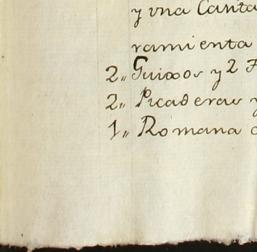 y vna Canta
ramienta
2,, Guixos y 2 F
2,, Picaderas y
1,, Romana